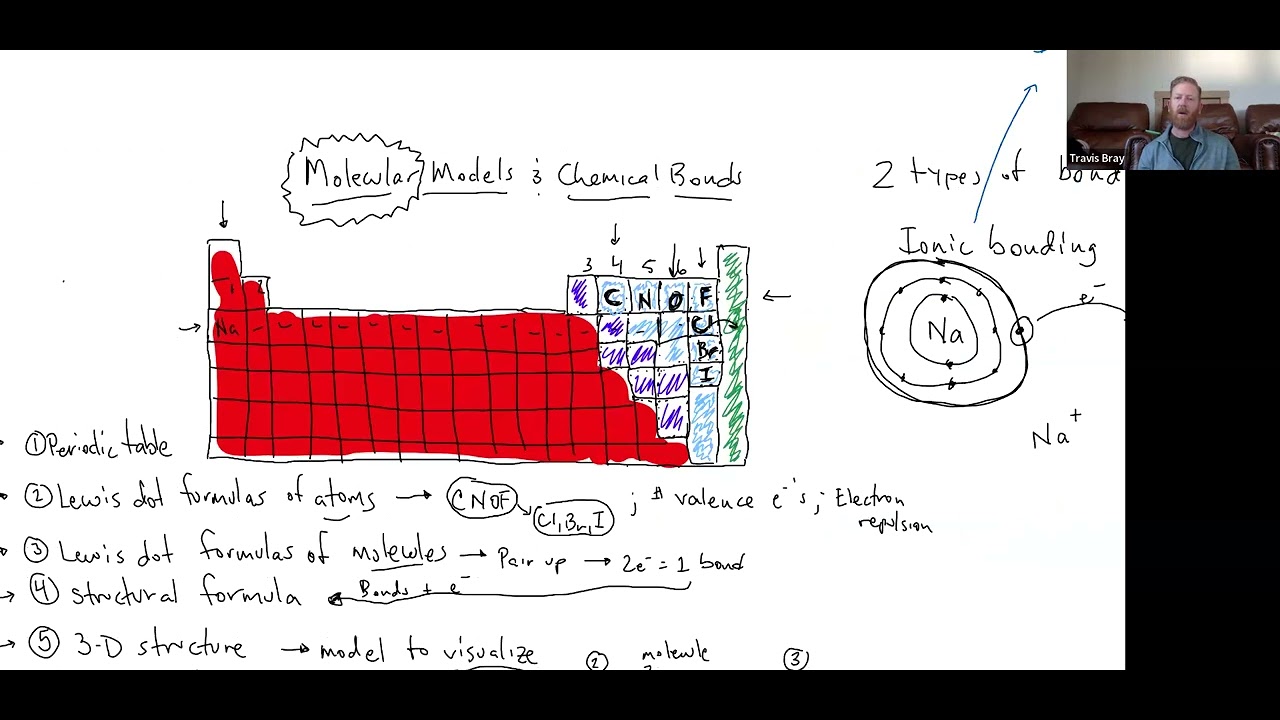 Travis Bray
Molecular Models & Chemical Bonds
2 types of bond
Ionic bonding
3 4 5 6
1 2
C N O F
Na Cl
Br
I
Na
e⁻
Na⁺
① Periodic table
② Lewis dot formulas of atoms → CNOF → Cl, Br, I ; # valence e⁻'s ; Electron repulsion
③ Lewis dot formulas of molecules → Pair up → 2e⁻ = 1 bond
④ structural formula Bonds + e⁻
⑤ 3-D structure → model to visualize
② molecule ③